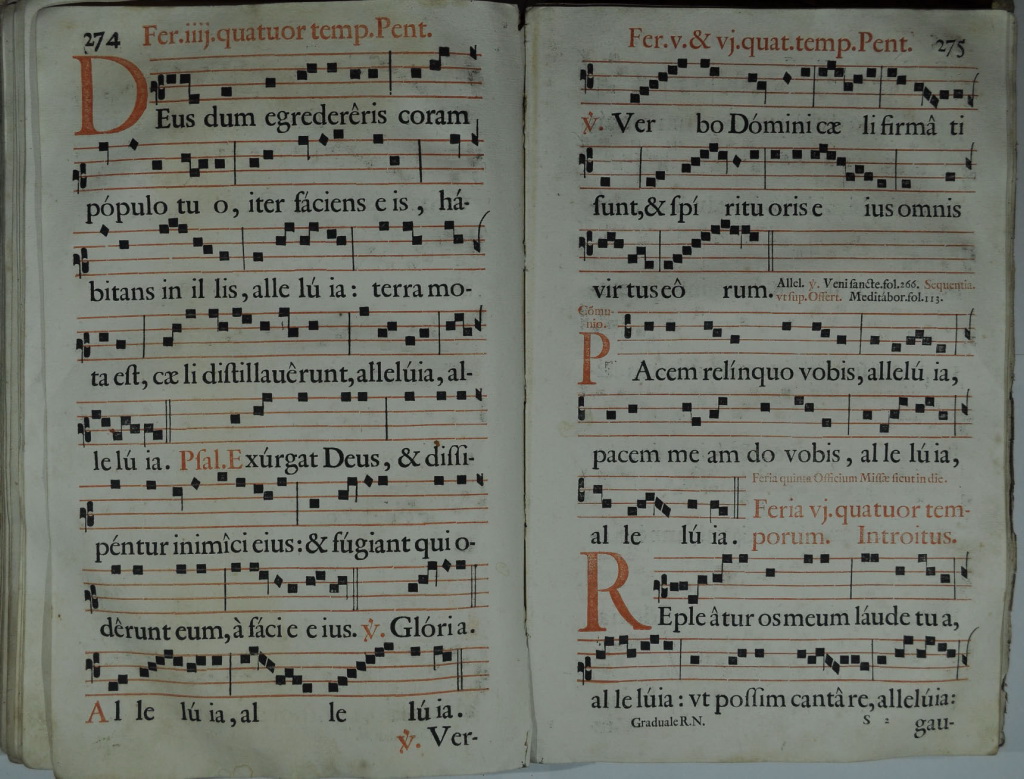 274 Fer.iiij.quatuor temp.Pent.
DEus dum egrederêris coram
pópulo tu o, iter fáciens e is, há-
bitans in il lis, alle lú ia: terra mo-
ta eſt, cæ li diſtillauêrunt, allelúia, al-
le lú ia. Pſal. Exúrgat Deus, & diſſi-
péntur inimîci eius: & fúgiant qui o-
dêrunt eum, à fáci e e ius. ℣. Glóri a.
Al le lú ia, al le lú ia.
℣. Ver-
Fer.v.& vj.quat.temp.Pent. 275
℣. Ver bo Dómini cæ li firmâ ti
ſunt, & ſpí ritu oris e ius omnis
vir tus eô rum. Allel. ℣. Veni ſancte.fol.266. Sequentia.
vt ſup. Offert. Meditábor.fol.113.
Cómu-
nio.
PAcem relínquo vobis, allelú ia,
pacem me am do vobis, al le lú ia,
Feria quinta Officium Miſſæ ſicut in die.
al le lú ia. Feria vj.quatuor tem-
porum. Introitus.
REple âtur os meum láude tu a,
al le lúia: vt poſſim cantâ re, allelúia:
Graduale R.N. S 2 gau-